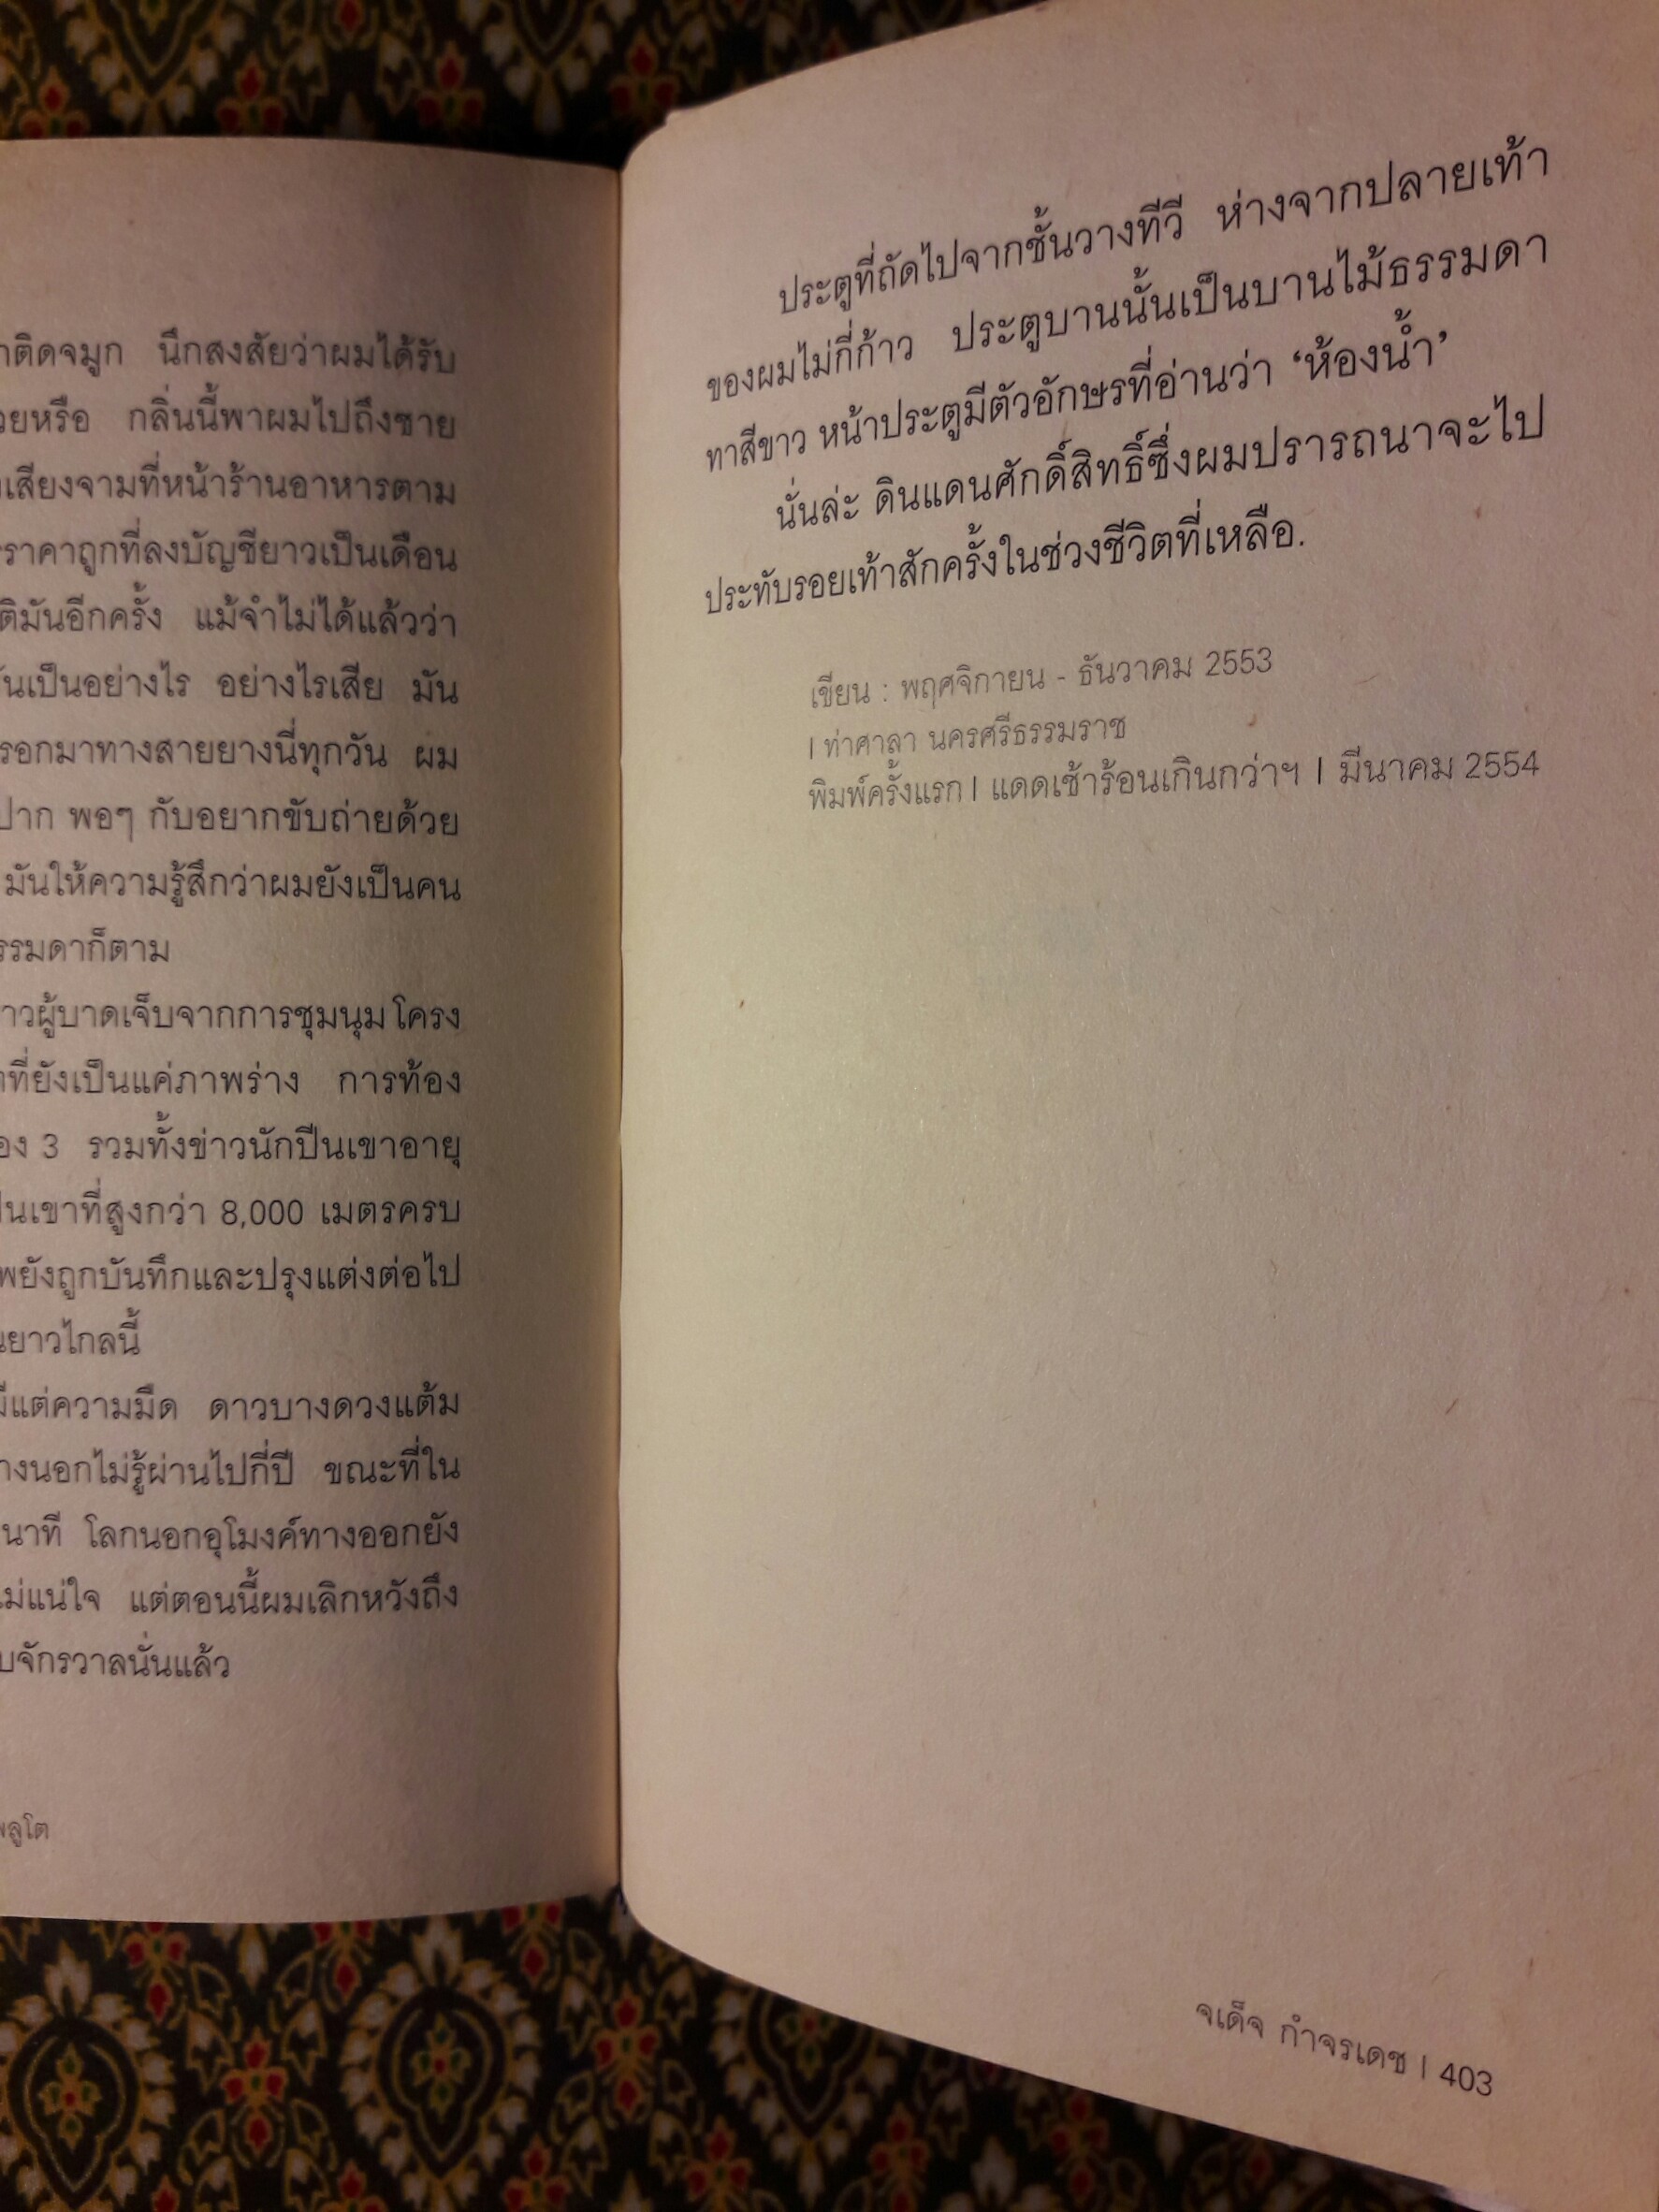 ติดจมูก นึกสงสัยว่าผมได้รับ
หรือ กลิ่นนี้พาผมไปถึงชาย
เสียงจามที่หน้าร้านอาหารตาม
ราคาถูกที่ลงบัญชียาวเป็นเดือน
มันอีกครั้ง แม้จำไม่ได้แล้วว่า
เป็นอย่างไร อย่างไรเสีย มัน
กรอกมาทางสายยางนี่ทุกวัน ผม
ปาก พอๆ กับอยากขับถ่ายด้วย
มันให้ความรู้สึกว่าผมยังเป็นคน
ธรรมดาก็ตาม
ผู้บาดเจ็บจากการชุมนุม โครง
ที่ยังเป็นแค่ภาพร่าง การท้อง
3 รวมทั้งข่าวนักปีนเขาอายุ
ปีนเขาที่สูงกว่า 8,000 เมตรครบ
ยังถูกบันทึกและปรุงแต่งต่อไป
ยาวไกลนี้
มีแต่ความมืด ดาวบางดวงแต้ม
นอกไม่รู้ผ่านไปกี่ปี ขณะที่ใน
นาที โลกนอกอุโมงค์ทางออกยัง
ไม่แน่ใจ แต่ตอนนี้ผมเลิกหวังถึง
จักรวาลนั่นแล้ว
พลูโต
ประตูที่ถัดไปจากชั้นวางทีวี ห่างจากปลายเท้า
ของผมไม่กี่ก้าว ประตูบานนั้นเป็นบานไม้ธรรมดา
ทาสีขาว หน้าประตูมีตัวอักษรที่อ่านว่า ‘ห้องน้ำ’
นั่นล่ะ ดินแดนศักดิ์สิทธิ์ซึ่งผมปรารถนาจะไป
ประทับรอยเท้าสักครั้งในช่วงชีวิตที่เหลือ.
เขียน : พฤศจิกายน - ธันวาคม 2553
| ท่าศาลา นครศรีธรรมราช
พิมพ์ครั้งแรก | แดดเช้าร้อนเกินกว่าฯ | มีนาคม 2554
จเด็จ กำจรเดช | 403